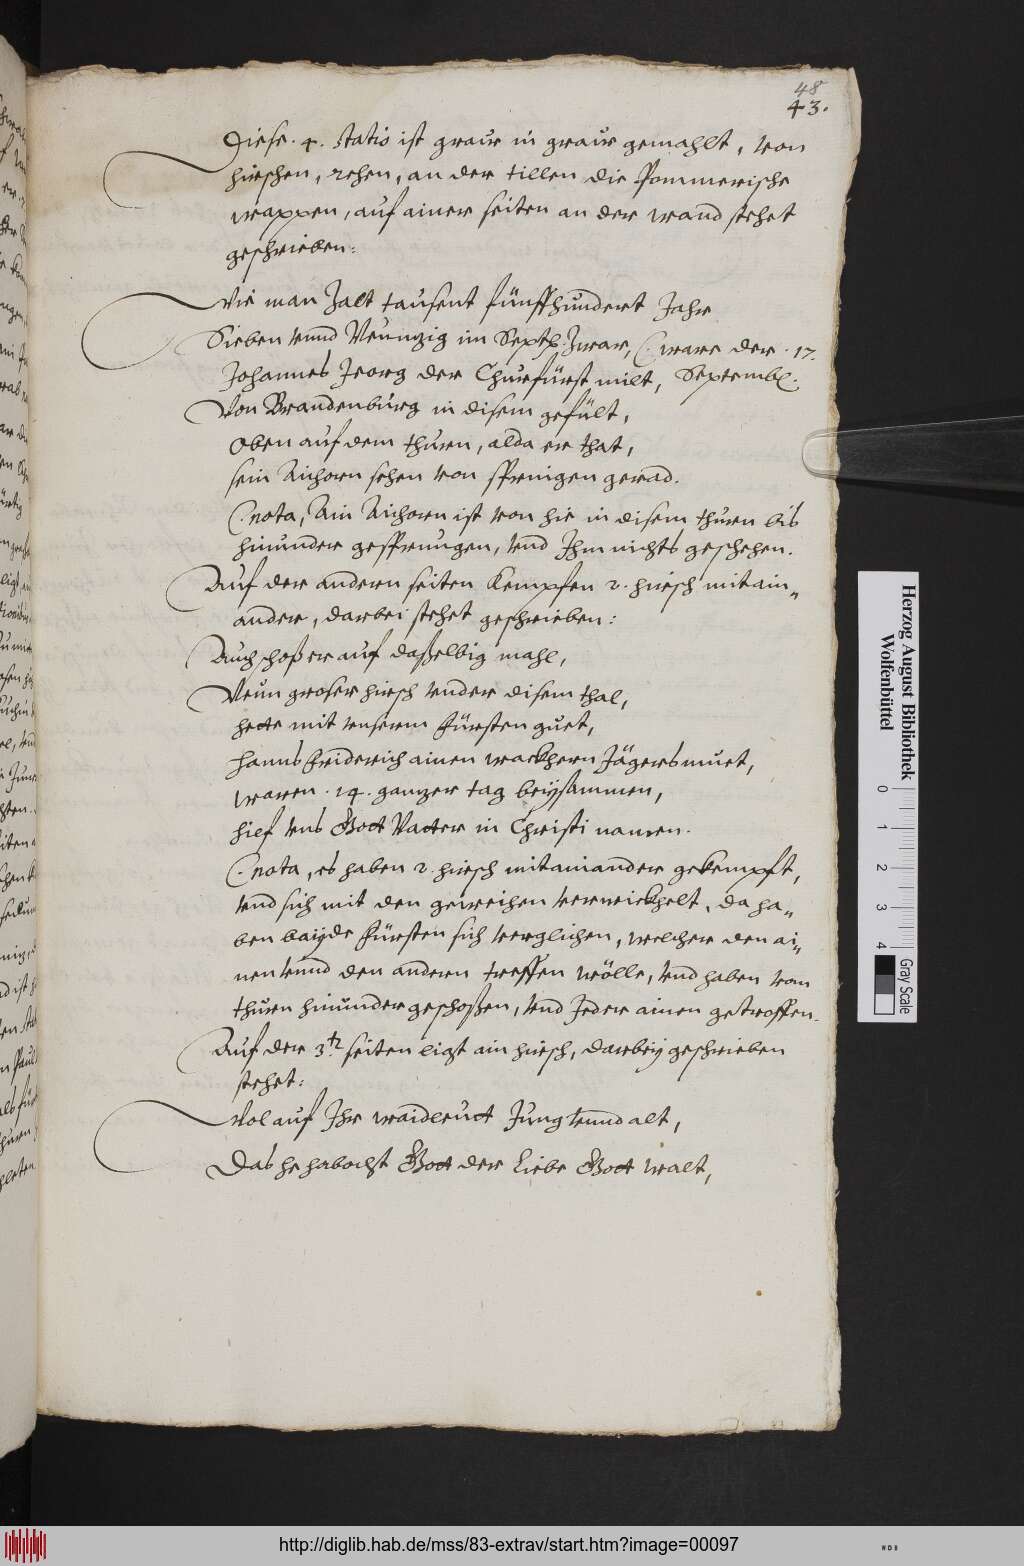 48
43.
Diese .4. statio ist graw in graw gemahlt, von
hirschen, rehen, an der tillen die Pommerische
wappen, auf ainer seiten an der wand stehet
geschrieben:
Wie man Zalt tausent fünffhundert Jahr
Sieben vnnd Neunzig im Septb. Zwar, (. ware der .17.
Johannes Jeorg der Churfürst milt, Septembr.
Von Brandenburg in disem gefült,
oben auf dem thurn, alda er that,
sein Aichorn sehen von springen gerad.
(. nota, Ain Aichorn ist von hie in disem thurn bis
hinunder gesprungen, vnd Ihm nichts geschehen.
Auf der andern seiten kempfen 2. hirsch mitain„
ander, darbei stehet geschrieben:
Auch schoß er auf daßelbig mahl,
Neun groser hirsch vnder disem thal,
hette mit vnserm Fürsten guet,
Hanns Friderich ainen wackhern Jägersmuet,
waren .14. ganzer tag beysammen,
hilf vns Gott Vatter in Christi namen.
(. nota, es haben 2. hirsch mitainander gekempft,
vnd sich mit den geweihen verwickhelt, da ha„
ben bayde Fürsten sich verglichen, welcher den ai„
nen vnnd den andern treffen wölle, vnd haben vom
thurn hinunder geschoßen, vnd Jeder ainen getroffen.
Auf der 3tn seiten ligt ain hirsch, darbey geschrieben
stehet:
Wol auf Ihr waidleutt Jung vnnd alt,
Das Gott der liebe Gott walt,
Herzog August Bibliothek
Wolfenbüttel
0 1 2 3 4
Gray Scale
http://diglib.hab.de/mss/83-extrav/start.htm?image=00097